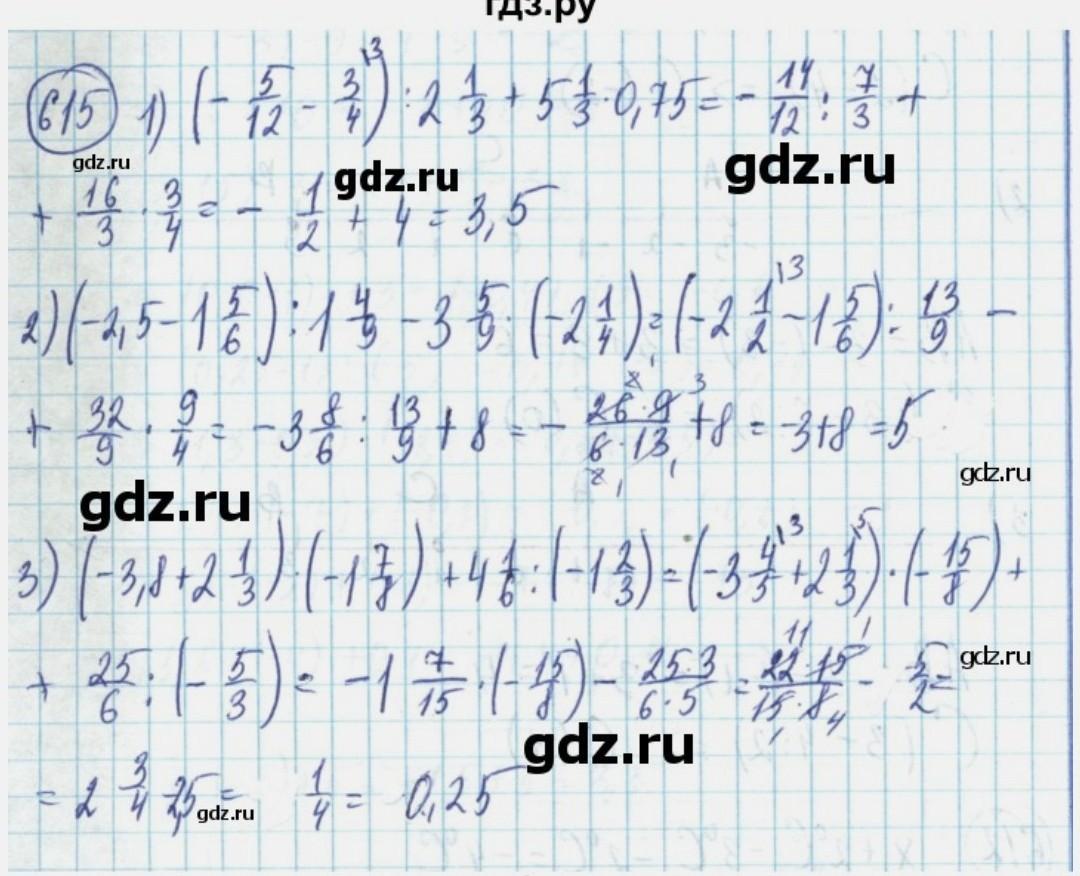 гдз.ру
615 1) (- 5/12 - 3/4 \3) : 2 1/3 + 5 1/3 · 0,75 = - 14/12 : 7/3 +
gdz.ru gdz.ru gdz.ru
+ 16/3 · 3/4 = - 1/2 + 4 = 3,5
2) (-2,5 - 1 5/6) : 1 4/9 - 3 5/9 · (-2 1/4) = (-2 1/2 \3 - 1 5/6) : 13/9 -
+ 32/9 · 9/4 = -3 8/6 : 13/9 + 8 = - 26·9/6·13 + 8 = -3+8 = 5
gdz.ru gdz.ru
3) (-3,8 + 2 1/3) · (-1 7/8) + 4 1/6 : (-1 2/3) = (-3 4/5 \3 + 2 1/3 \5) · (- 15/8) +
+ 25/6 : (- 5/3) = -1 7/15 · (- 15/8) - 25·3/6·5 = 22·15/15·8 - 5/2 =
gdz.ru
gdz.ru
= 2 3/4 2,5 = 1/4 = 0,25
gdz.ru